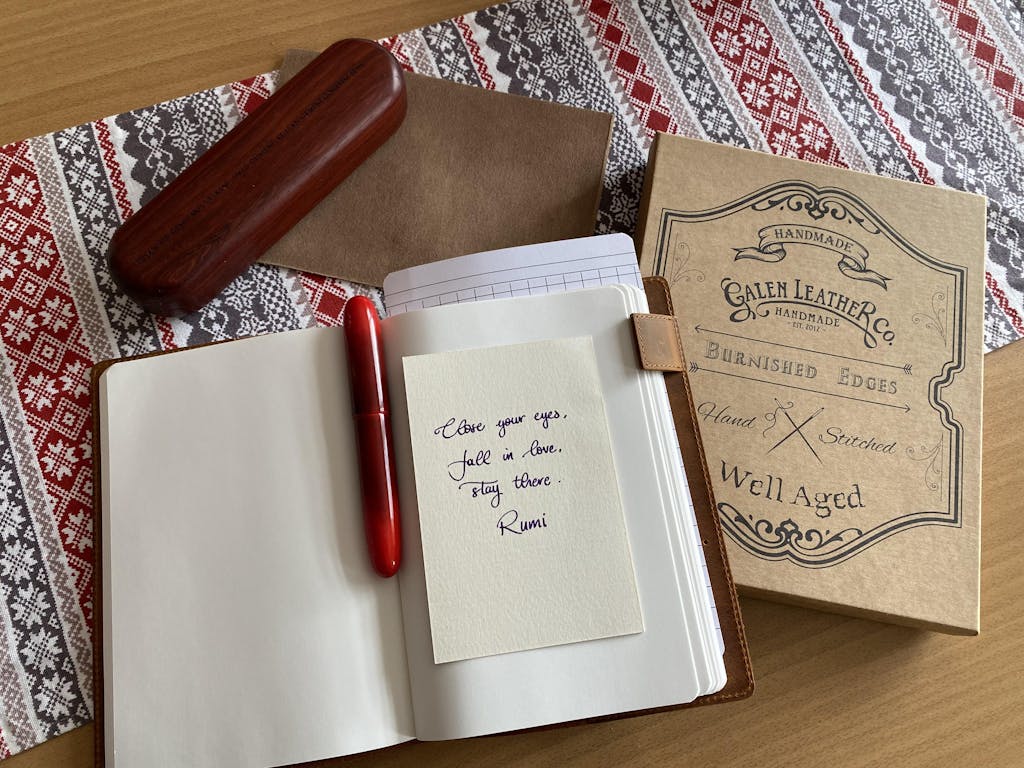 Close your eyes,
fall in love,
stay there.
Rumi
HANDMADE
GALEN LEATHER CO.
HANDMADE
- EST. 2012 -
BURNISHED EDGES
Hand Stitched
Well Aged